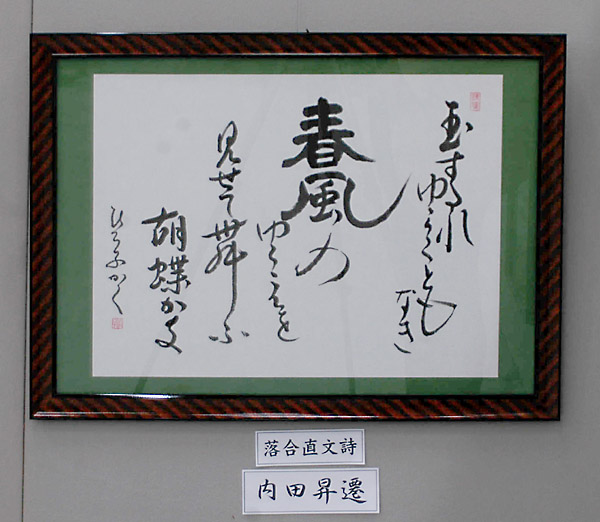 玉すたれ
ゆらくとも
なき
春風の
ゆくへを
見せて舞ふ
胡蝶かな
落合直文詩
内田昇遷